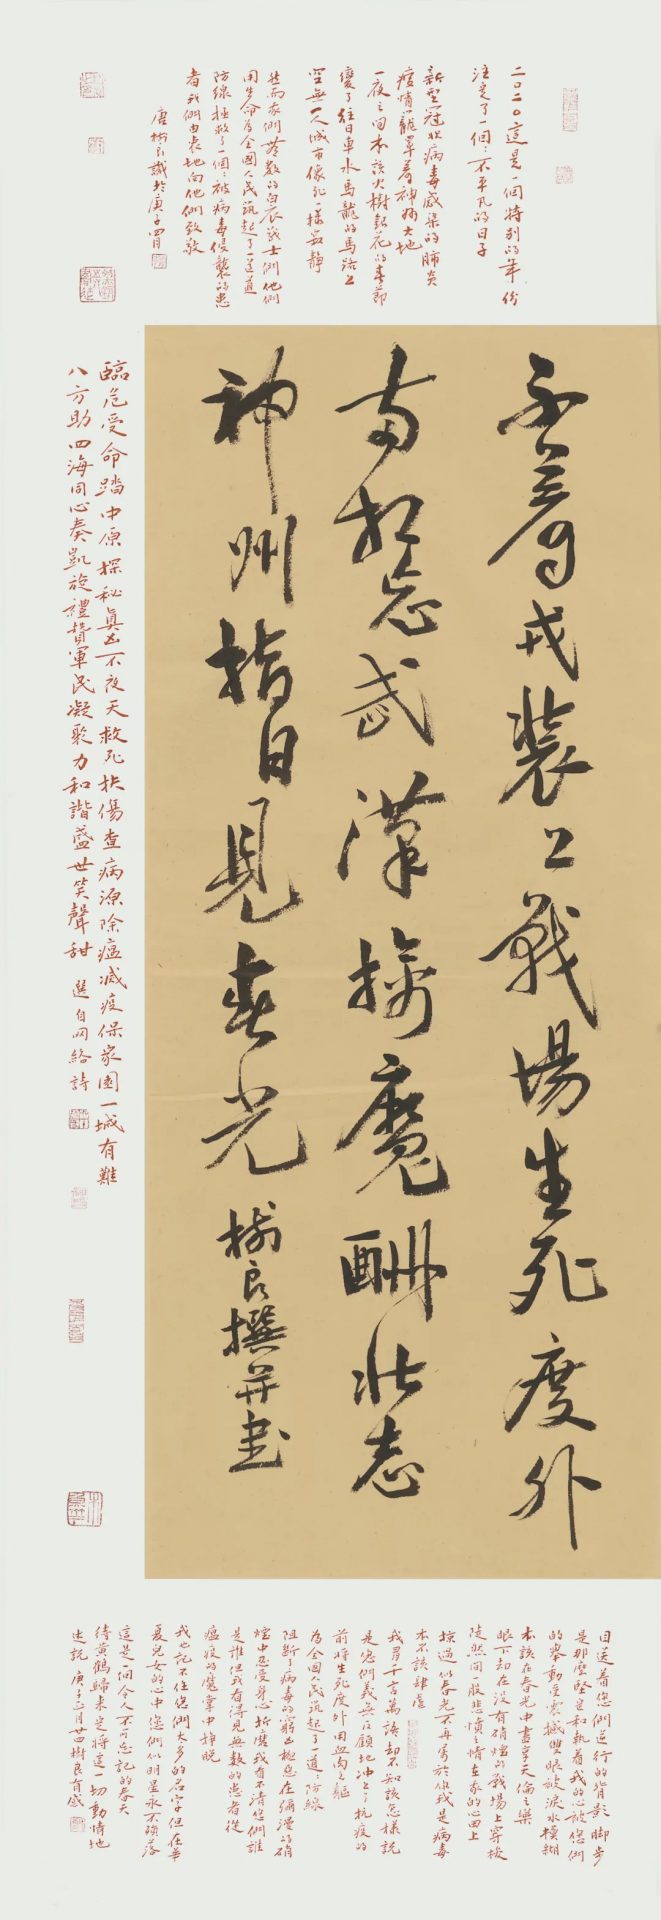 二〇二〇這是一個特别的年份
注定了一個不平凡的日子
新型冠狀病毒感染的肺炎
疫情籠罩着神州大地
一夜之間本該火樹銀花的春節
變了往日車水馬龍的馬路上
空無一人城市像死一樣寂静
然而我們無數的白衣戰士們他們
用生命為全國人民筑起了一道道
防線拯救了一個個被病毒侵襲的患
者我們由衷地向他們致敬
唐樹良識於庚子四月
不着戎裝上戰場生死度外
兩相忘武漢擒魔酬壯志
神州指日見春光 樹良撰并書
臨危受命踏中原探秘真凶不夜天救死扶傷查病源除瘟滅疫保家園一城有難
八方助四海同心奏凱旋禮贊軍民凝聚力和諧盛世笑聲甜 選自网絡詩
目送着您們逆行的背影脚步
是那麼堅定和執着我的心被您們
的舉動受震撼雙眼被淚水模糊
本該在春光中盡享天倫之樂
眼下却在没有硝烟的戰場上穿梭
陡然间一股悲憤之情在我的心田上
掠過似春光不再寄於你我是病毒
本不該肆虐
我尋千言萬語却不知該怎樣説
是您們義無反顧地冲上了抗疫的
前将生死度外用血肉之軀
為全國人民筑起了一道道防線
阻斷了病毒的窮凶極惡在彌漫的硝
烟中忍受身心折磨我看不清您們誰
是誰但我看得見無數的患者從
瘟疫的魔掌中掙脱
我也記不住您們大多的名字但在華
夏兒女的心中您們似明星永不殞落
這是一個令人不可忘記的春天
待黄鶴歸来定將這一切動情地
述説 庚子二月廿四樹良有感